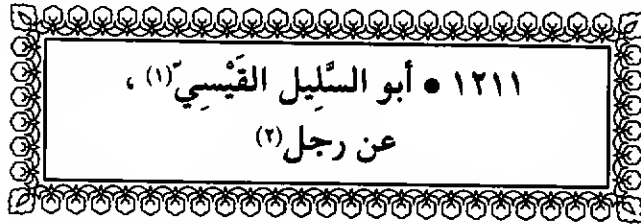 ١٢١١ • أبو السَّلِيل القَيْسِيّ(١) ،
عن رجل(٢)